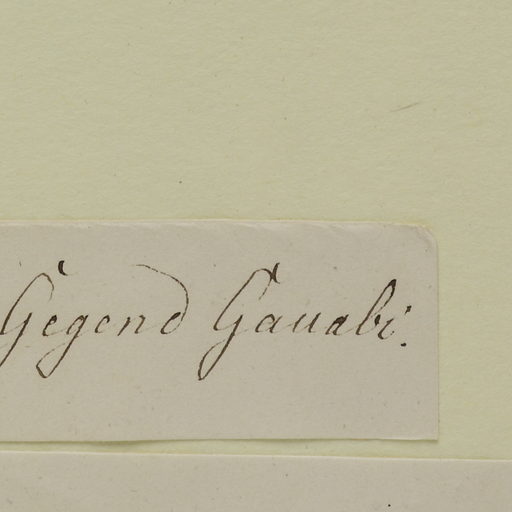 Gegend Gauabi.